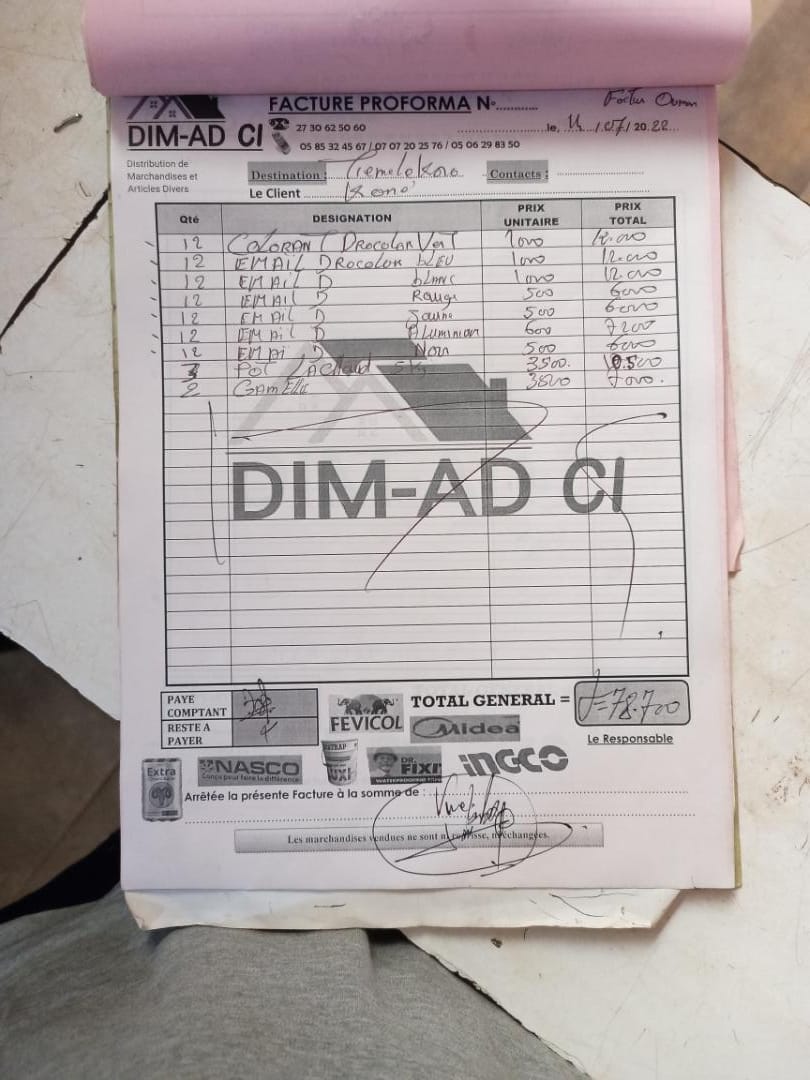 FACTURE PROFORMA N°............
DIM-AD CI
27 30 62 50 60
le, 11 / 07 / 2022
05 85 32 45 67 / 07 07 20 25 76 / 05 06 29 83 50
Distribution de
Marchandises et
Articles Divers
Destination : Contacts :
Le Client Kone
Qté DESIGNATION PRIX UNITAIRE PRIX TOTAL
12 COLORANT DROCOLOR VERT 1000 12.000
12 EMAIL DROCOLOR bLEU 1000 12.000
12 EMAIL D blanc 1000 12.000
12 EMAIL D Rouge 500 6000
12 EMAIL D Jaune 500 6000
12 EMAIL D Aluminium 600 7200
12 EMAIL D Noir 500 6000
3 POT 5Kg 3500. 10.500
2 GAMELLE 3500 7000.
DIM-AD CI
PAYE
COMPTANT
RESTE A
PAYER
FEVICOL
TOTAL GENERAL = 78.700
Midea
Le Responsable
Extra
NASCO
Conçu pour faire la différence
DR. FIXIT
WATERPROOFING
INGCO
Arrêtée la présente Facture à la somme de :
Les marchandises vendues ne sont ni reprisse, ni échangées.